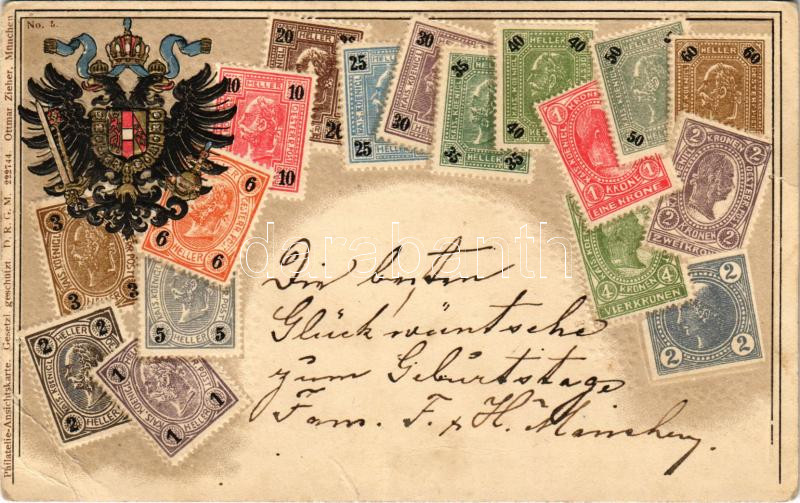 No. 5.
Philatelie-Ansichtskarte. Gesetzl. geschützt D. R. G. M. 222744. Ottmar Zieher, München
20 20
25 HELLER 25
30 30
35 HELLER 35
40 40 40 HELLER
50 HELLER 50
60 HELLER 60
10 HELLER 10 10
1 KRONE 1 EINE KRONE
2 KRONEN 2 ZWEI KRONEN
6 6 HELLER 6
3 3 HELLER 3
4 KRONEN 4 VIER KRONEN
5 5
2 2 2
2 HELLER 2 2 HELLER
1 1 HELLER 1
darabanth
Die besten
Glückwünsche
zum Geburtstage
Fam. F. & H.